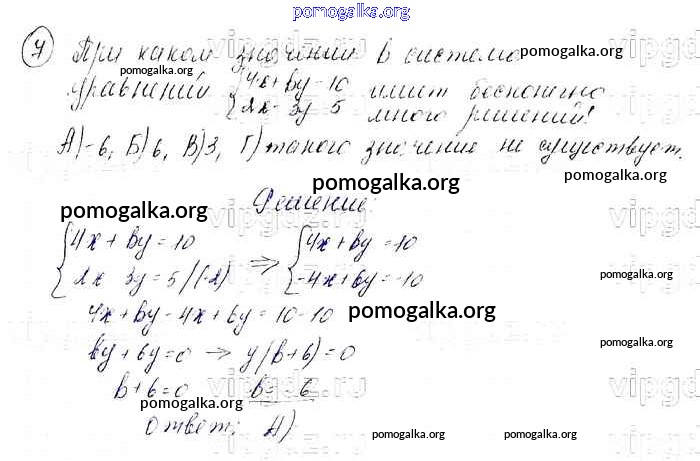 pomogalka.org
7 При каком значении b система
pomogalka.org
pomogalka.org
уравнений { 4x + by = 10 имеет бесконечно
2x - 3y = 5 много решений?
pomogalka.org
А) -6, Б) 6, В) 3, Г) такого значения не существует.
pomogalka.org
pomogalka.org
Решение:
pomogalka.org
{ 4x + by = 10 ⇒ { 4x + by = 10
2x 3y = 5 /(-2) -4x + 6y = -10
pomogalka.org
4x + by - 4x + 6y = 10 - 10 pomogalka.org
by + 6y = 0 → y(b + 6) = 0
pomogalka.org
b + 6 = 0 b = -6
pomogalka.org
Ответ: А)
pomogalka.org
pomogalka.org
vipgdz.ru
vipgdz.ru
vipgdz.ru
vipgdz.ru